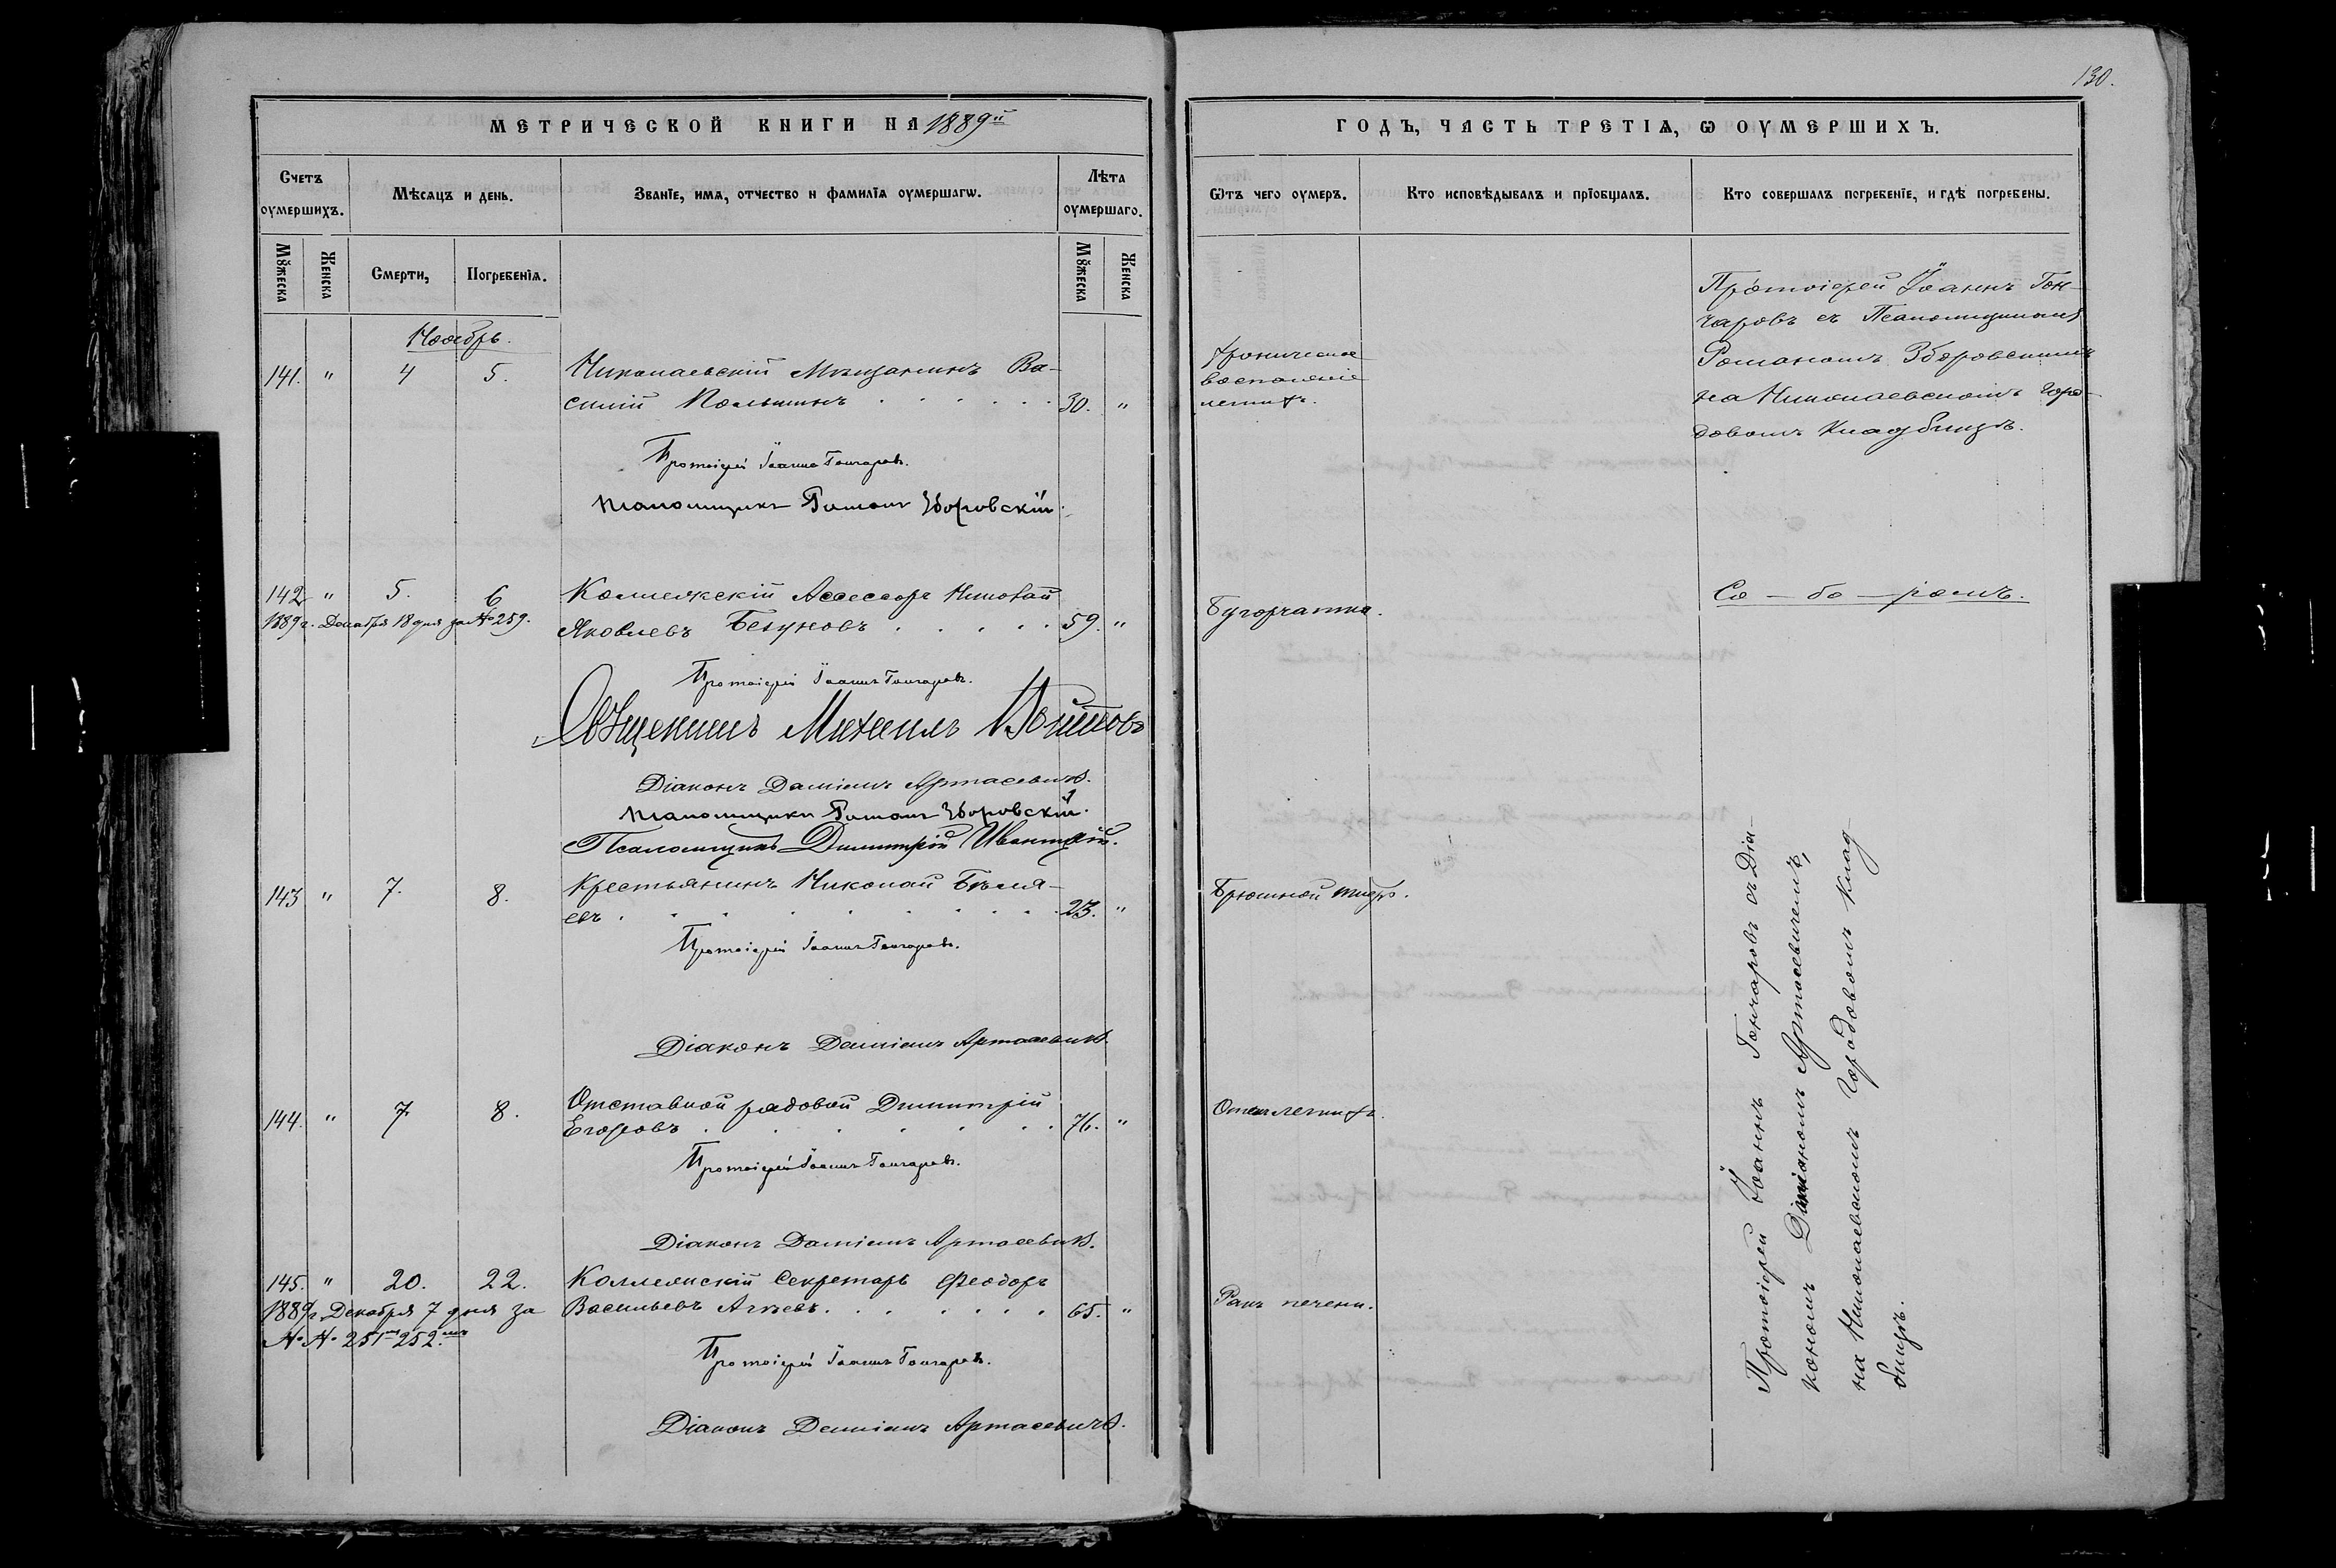 130.
МЕТРИЧЕСКОЙ КНИГИ НА 1889й
Счетъ оумершихъ.
Мѣсяцъ и день.
Званїе, имѧ, отчество и фамилїѧ оумершагѡ.
Лѣта оумершаго.
Мꙋжеска
Женска
Смерти,
Погребенїѧ.
Мꙋжеска
Женска
Ноябрь.
141. " 4 5. Николаевскій Мѣщанинъ Ва-
силій 30. "
Протоіерей Іоаннъ Гончаровъ.
Псаломщикъ Романъ Зборовскій.
142 " 5. 6 Коллежскій Ассесоръ Николай
1889 г. Декабря 18 дня за № 259. Яковлевъ Бегуновъ 59. "
Протоіерей Іоаннъ Гончаровъ.
Священникъ Михаилъ
Діаконъ Даміанъ Артасевичъ.
Псаломщики Романъ Зборовскій.
Псаломщикъ Димитрій
143 " 7. 8. Крестьянинъ Николай Бѣля-
евъ 23. "
Протоіерей Іоаннъ Гончаровъ.
Діаконъ Даміанъ Артасевичъ.
144. " 7 8. Отставной рядовой Димитрій
Егоровъ 76. "
Протоіерей Іоаннъ Гончаровъ.
Діаконъ Даміанъ Артасевичъ.
145. " 20. 22. Коллежскій Секретарь Феодоръ
1889 г. Декабря 7 дня за Васильевъ Агѣевъ 65. "
№ № 251 252.
Протоіерей Іоаннъ Гончаровъ.
Діаконъ Даміанъ Артасевичъ.
ГОДЪ, ЧАСТЬ ТРЕТІѦ, Ѡ ОУМЕРШИХЪ.
Ѿтъ чего оумеръ.
Кто исповѣдывалъ и прїобщалъ.
Кто совершалъ погребенїе, и гдѣ погребены.
Хроническое
воспаленіе
легкихъ.
Протоіерей Іоаннъ Гон-
чаровъ съ Псаломщикомъ
Романомъ Зборовскимъ
на Николаевскомъ горо-
довомъ кладбищѣ.
Бугорчатка.
Со - бо - ромъ.
Брюшной тифъ.
Отекъ легкихъ.
Ракъ печени.
Протоіерей Іоаннъ Гончаровъ съ Діа-
кономъ Даміаномъ Артасевичемъ,
на Николаевскомъ городовомъ клад-
бищѣ.